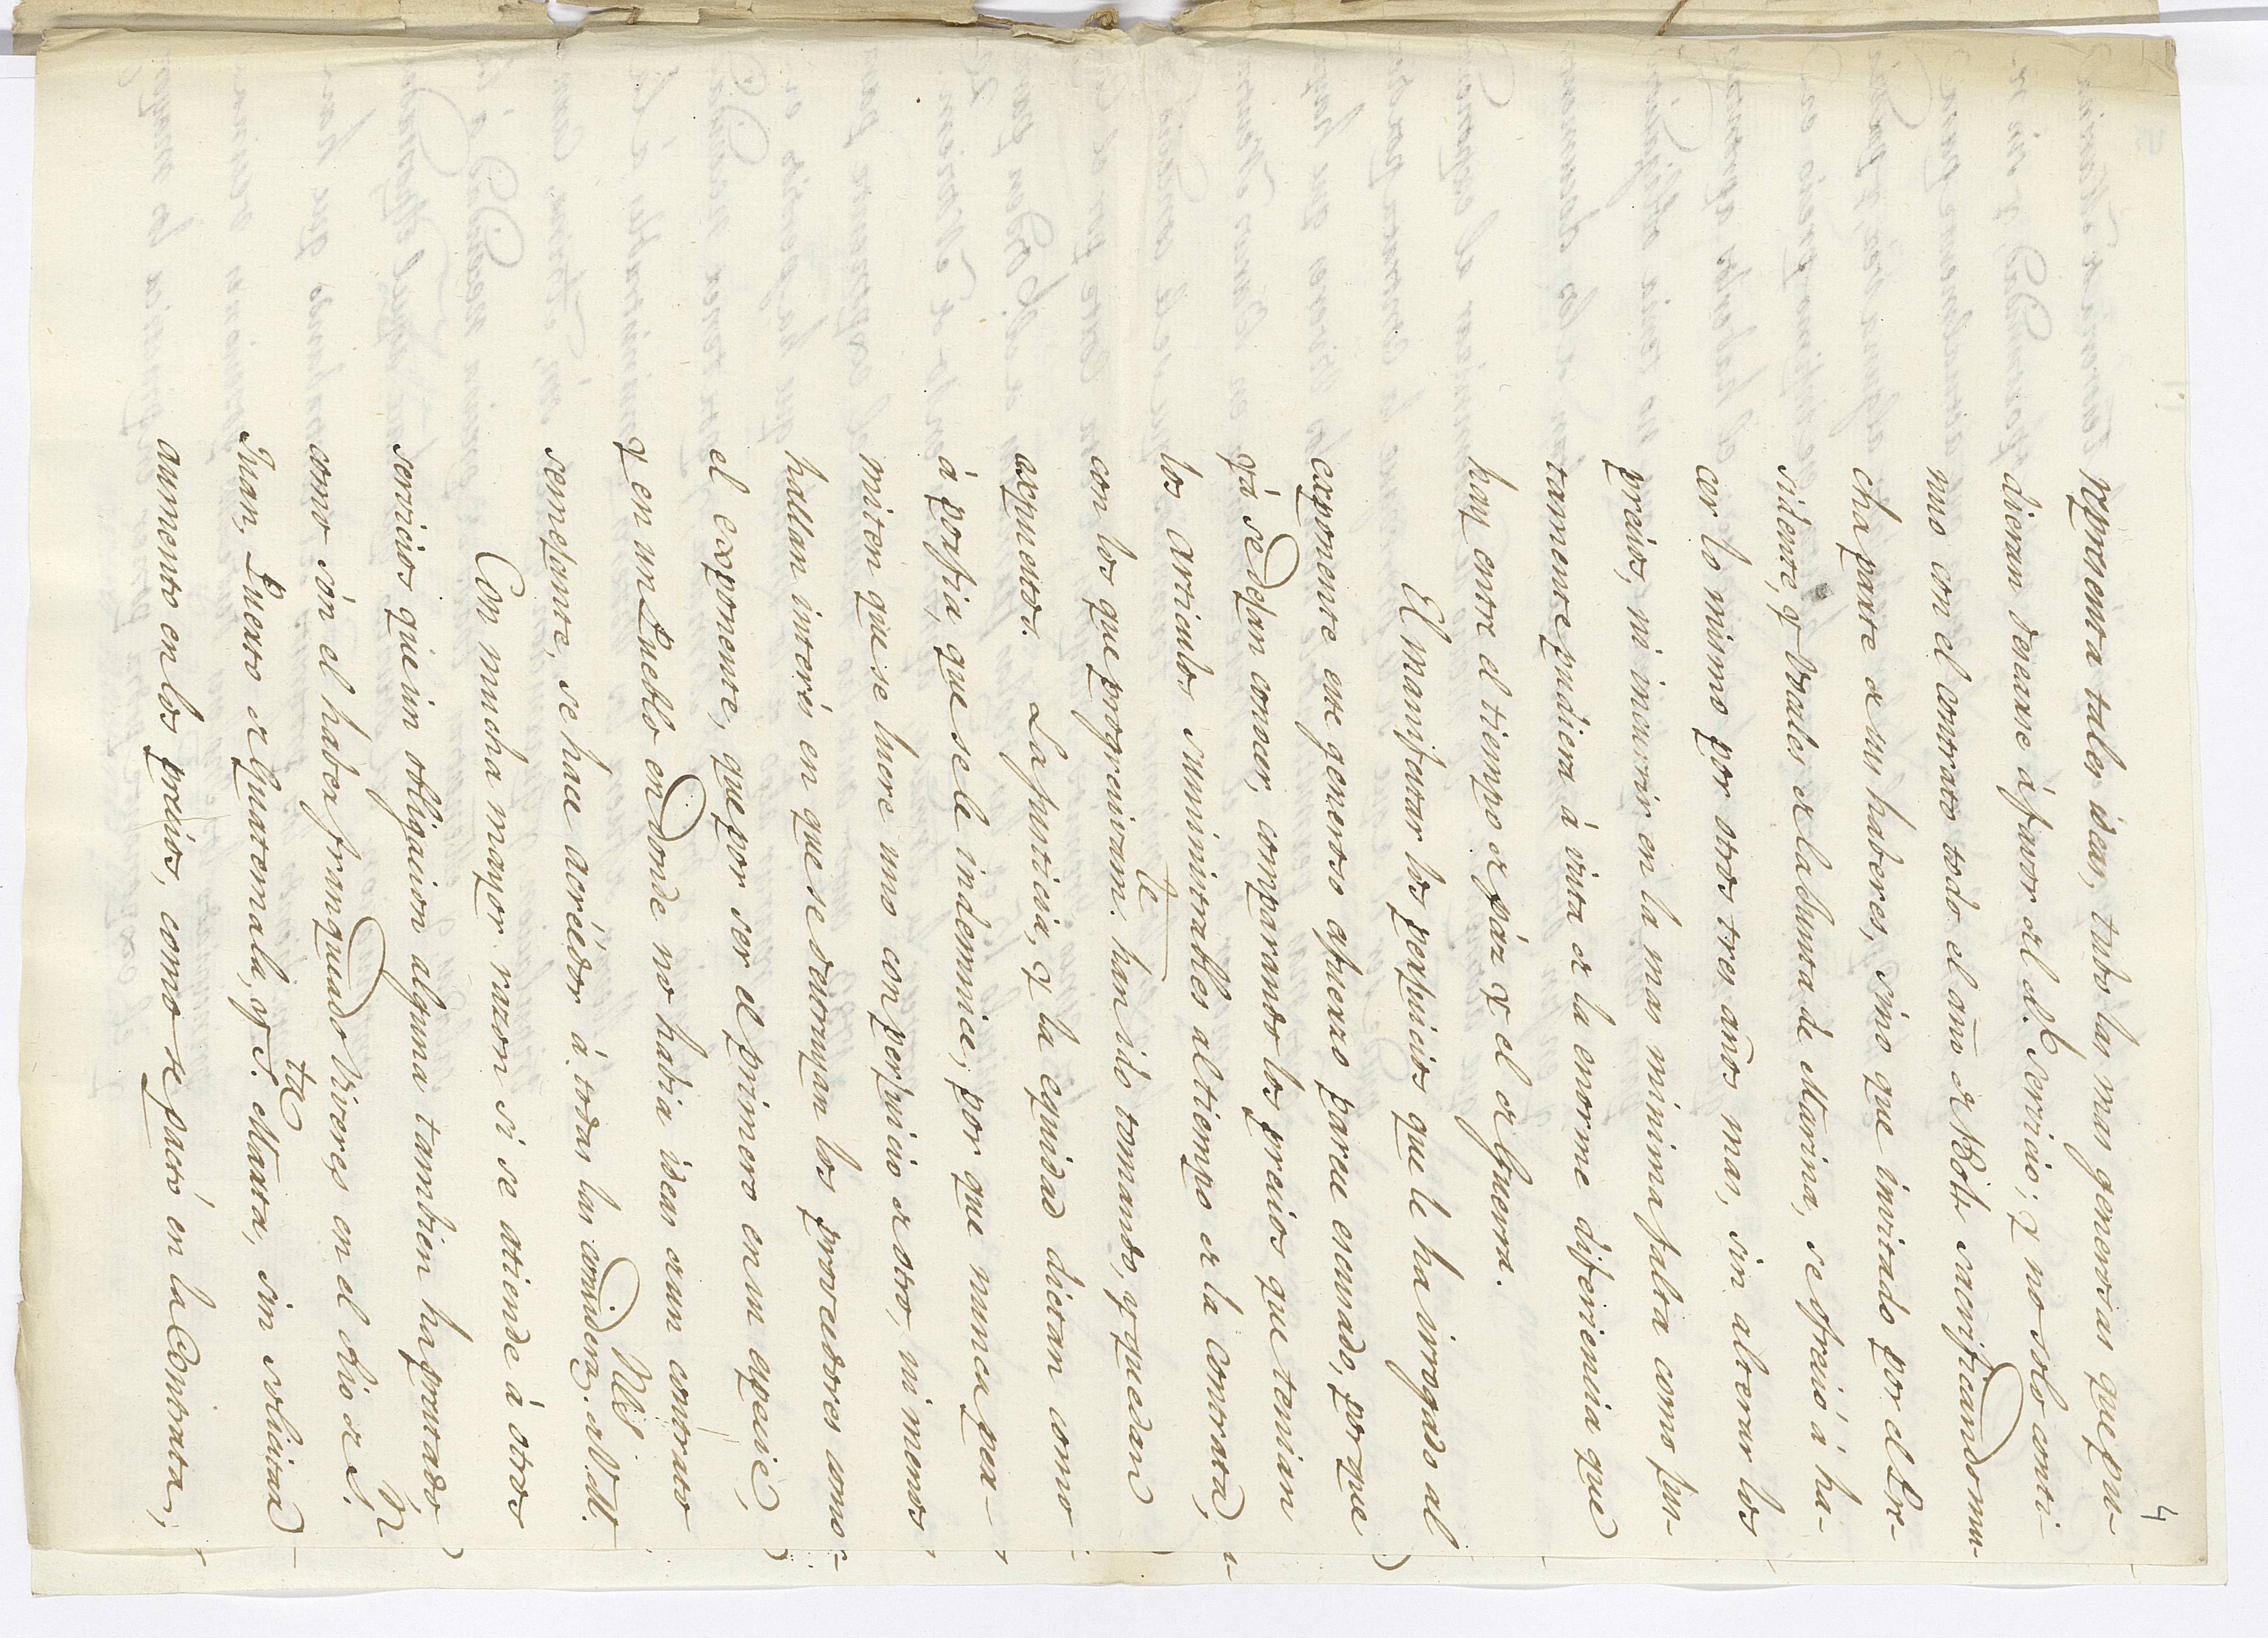 4
representa tales ideas, tubo las mas generosas que pu-
dieran desearse á favor del Rl. Servicio; y no solo conti-
nuo con el contrato todo el año de 1805 sacrificando mu-
cha parte de sus haberes, sino que invitado por el Pre-
sidente, y Vocales de la Junta de Marina, se ofreció á ha-
cer lo mismo por otros tres años mas, sin alterar los
precios, ni incurrir en la mas minima falta como jus-
tamente pudiera á vista de la enorme diferiencia que
hay entre el tiempo de páz y el de Guerra.
El manifestar los perjuicios que le ha irrogado al
exponente este generoso esfuerzo parece escusado, porque
yá se dejan conocer, comparando los precios que tenian
los articulos suministrables al tiempo de la contrata,
con los que progresivamte. han ido tomando, y quedan
expuestos. La justicia, y la equidad dictan como
á porfia, que se le indemnice; por que nunca per-
miten que se lucre uno con perjuicio de otro, ni menos
hallan interés en que se destruyan los proveedores como
el exponente, que por ser el primero en su especie,
y en un Pueblo en donde no habia ideas de un contrato
semejante, se hace acréédor á todas las consideras. de V.M.
Con mucha mayor razon si se atiende á otros
servicios que sin obligacion alguna tambien ha prestado
como són el haber franqueado viveres en el Rio de Sn.
Juan, Puerto de Guatemala, y Sta. Marta, sin solicitar
aumento en los precios, como se pactó en la Contrata,